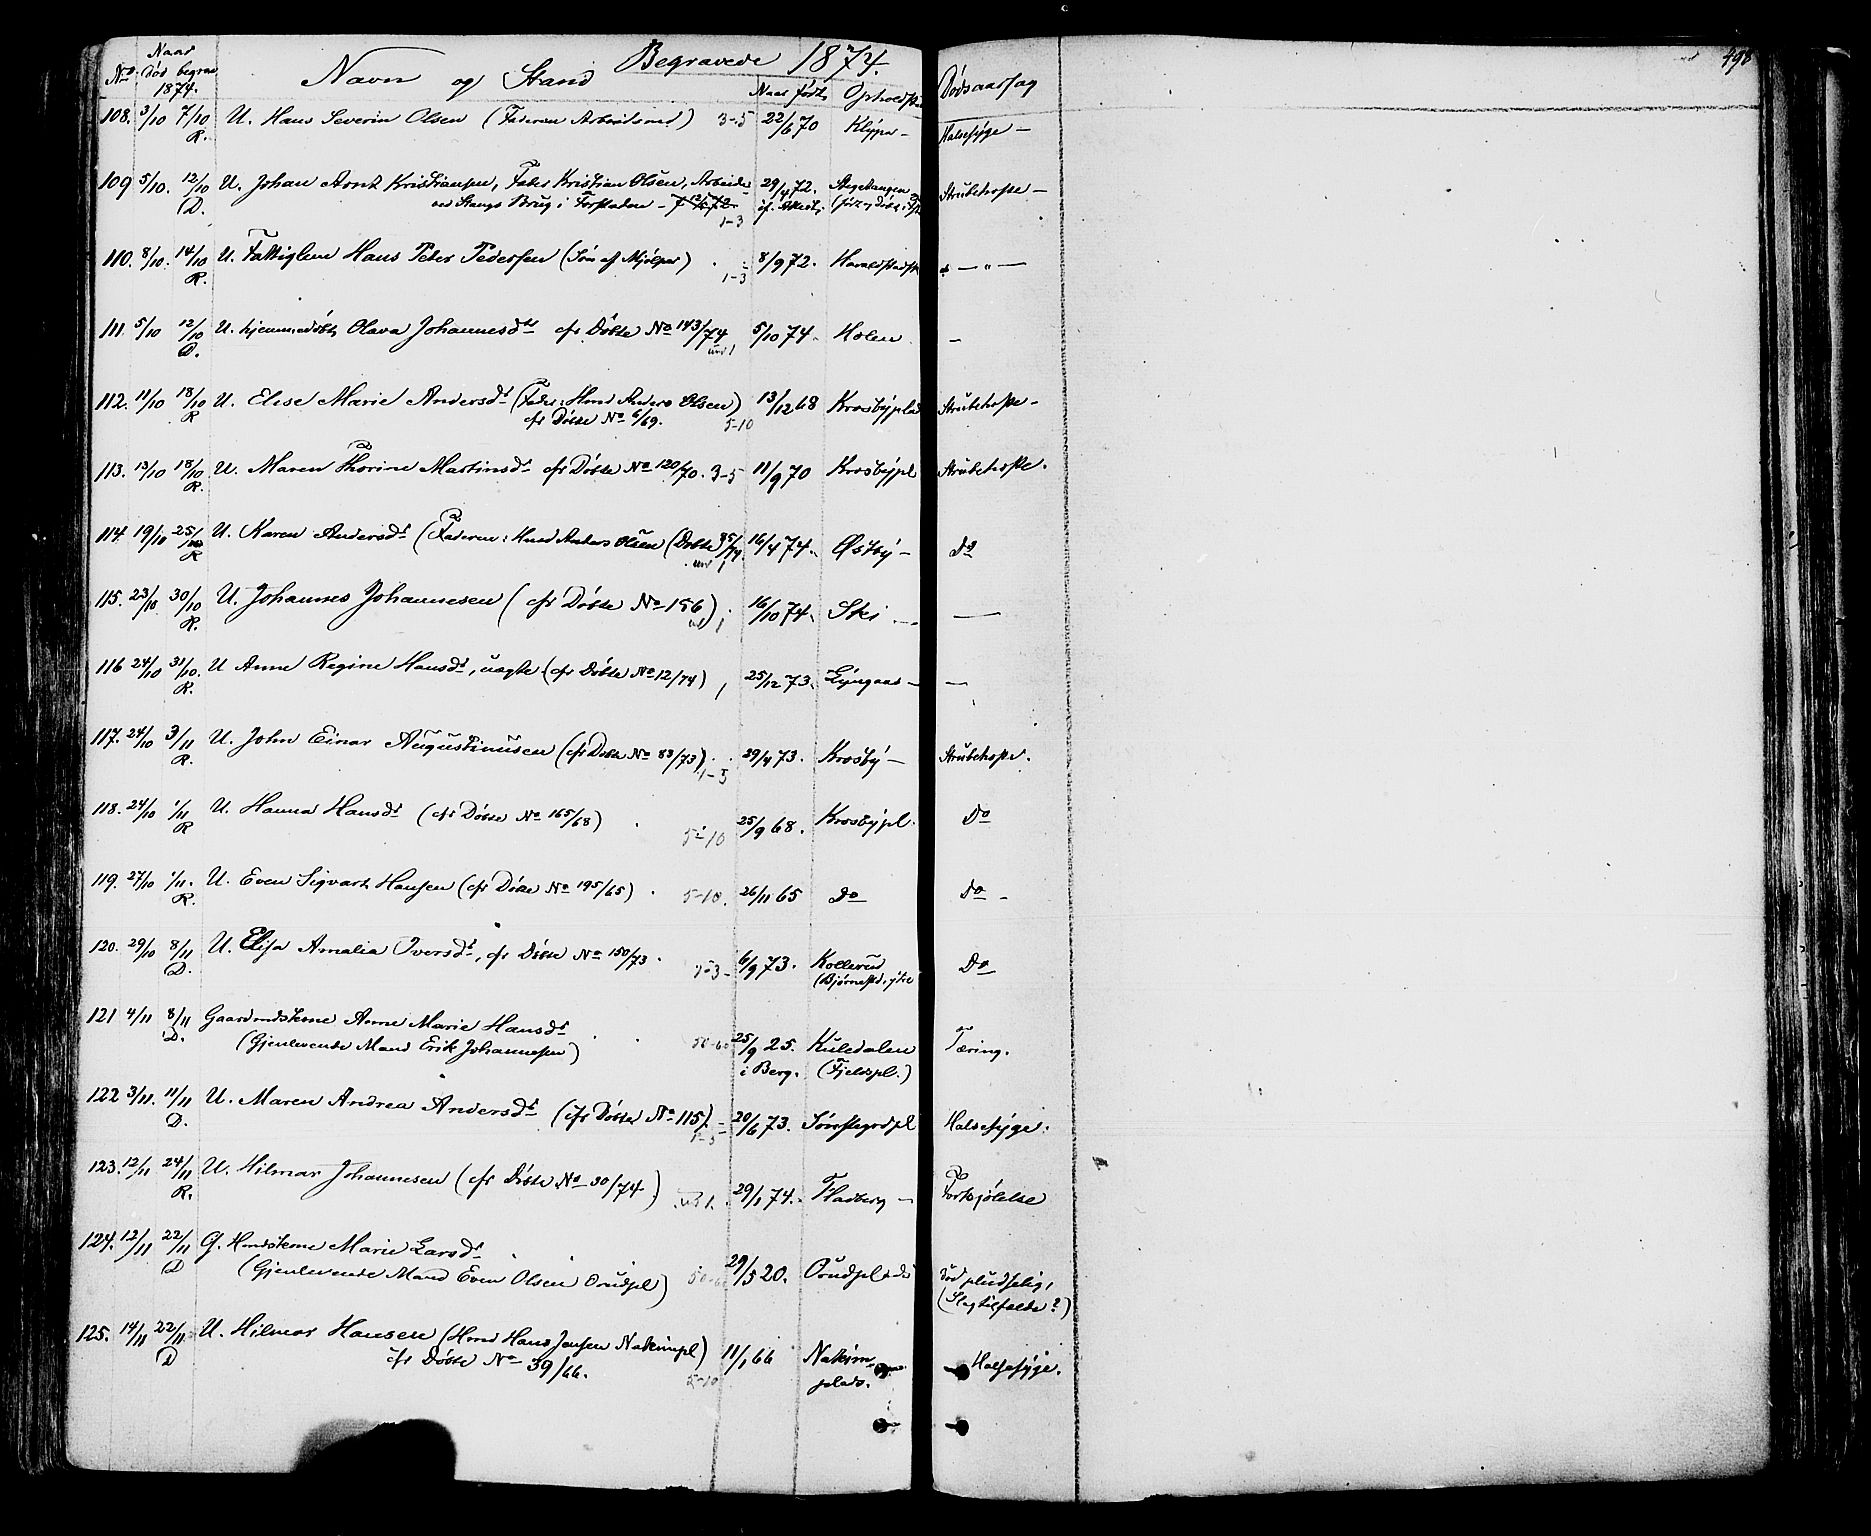 Begravede 1874.
No Naar død begrav 1874. Navn og Stand Naar født Opholdst Dødsaarsag 498
108. 3/10 7/10 R. U. Hans Severin Olsen (Faderen Arbeidsmd) 3-5 22/6 70 Klype - Halssyge -
109 5/10. 12/10 D. U. Johan Arnt Kristiansen, Fader Kristian Olsen, Arbeider 29/4 72. Strubehoste -
ved Stangs Brug i Forstaden - 1-3 if. Attest,
110. 8/10. 14/10 R. U. Fattiglem Hans Peter Pedersen (Søn af Mjølper) 1-3 8/9 72. Haraldstadsk - " -
111. 5/10 12/10 D. U. hjemmedøbt Olava Johannesdt cfr Døbte No 143/74 und 1 5/10 74. Holen -
112. 11/10 18/10 R U. Elise Marie Andersdt (Fader: Hmd Anders Olsen) 13/12 68 Krosbypl Strubehoste -
cfr Døbte No 6/69. 5-10
113. 13/10 18/10 R. U. Maren Thorine Martinsdt cfr Døbte No 120/70. 3-5 11/9 70 Krosbypl Strubehoste.
114 19/10 25/10 R U. Karen Andersdt (Faderen: Hmd Anders Olsen (Døbte 85/74 und 1 16/4 74. Østby - Do
115. 23/10 30/10 R. U. Johannes Johannesen (cfr Døbte No 156) und 1 16/10 74. Ski - -
116 24/10 31/10. R. U Anne Regine Hansdt, uægte (cfr Døbte No 12/74) 1 25/12 73. Lyngaas - -
117. 24/10 3/11 R. U. John Einar Augustinusen (cfr Døbte No 83/73) 1-3 29/4 73. Krosby - Strubehoste.
118. 24/10 1/11 R U. Hanna Hansdt (cfr Døbte No 165/68) 5-10 25/9 68. Krosbypl. Do
119. 27/10 1/11. R. U. Even Sigvart Hansen (cfr Døbte No 195/65) 5-10. 26/11 65 Do Do -
120. 29/10 8/11 D. U. Elisa Amalia Iversdt, cfr Døbte No 150/73. 1-3 - 6/9 73. Kollerud Do
(Bjørnestd. ytre
121 4/11 8/11 D. Gaardmdskone Anne Marie Hansdt 25/9 25. Kuledalen Tæring.
(Gjenlevende Mand Erik Johannesen) i Berg. (Fjeldspl.)
122 3/11. 11/11 D. U. Maren Andrea Andersdt (cfr Døbte No 115) 20/6 73. Halssyge.
123. 12/11 24/11 R. U. Hilmar Johannesen (cfr Døbte No 30/74) und 1. 29/1 74. Fladberg - Forkjølelse
124. 12/11 22/11 D G. Hmdskone Marie Larsdt 29/5 20. Død pludselig,
(Gjenlevende Mand Even Olsen Orudpl) (Slagtilfælde?)
125. 14/11 22/11 D U. Hilmar Hansen (Hmd Hans Jensen Nakimpl) 11/1 66 Nakim- Halssyge.
cfr Døbte No 39/66. 5-10 plads.